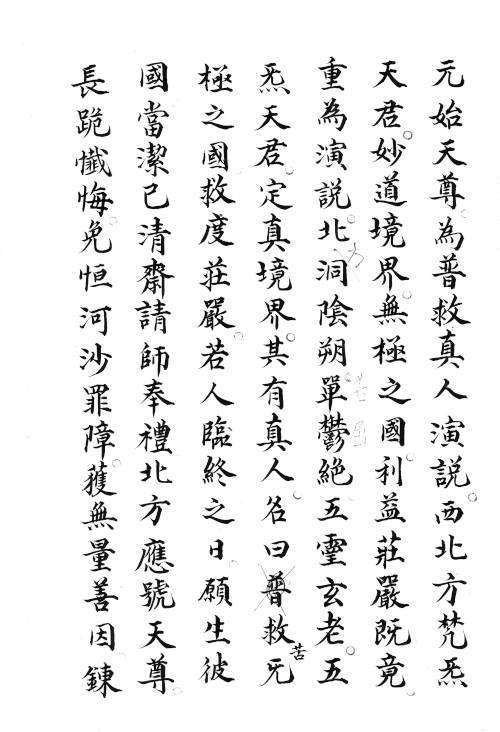 元始天尊為普救真人演説西北方梵炁
天君妙道境界無極之國利益莊嚴既竟
重為演説北方洞陰朔單鬱絕五靈玄老五
炁天君定真境界其有真人名曰普救苦
極之國救度莊嚴若人臨終之日願生彼
國當潔己清齋請師奉禮北方應號天尊
長跪懺悔免恒河沙罪障蒦無量善因鍊